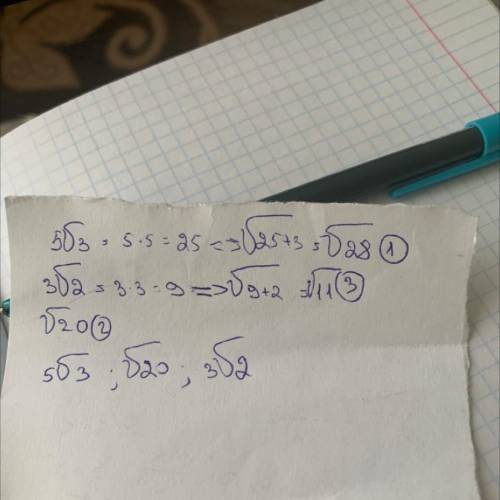 5√3 = 5·5 = 25 => √25+3 = √28 ①
3√2 = 3·3 = 9 => √9+2 = √11 ③
√20 ②
5√3 ; √20 ; 3√2